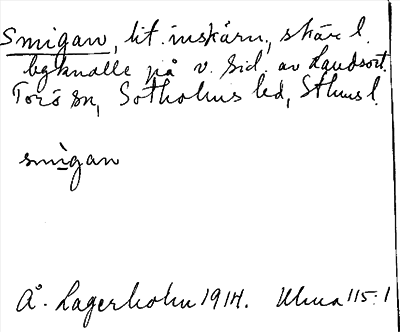 Smigan, lit. inskärn., skär l.
bgknalle på v. sid. av Landsort.
Torö sn, Sotholms hd, Sthms l.
smìgan
Å. Lagerholm 1914. Ulma 115:1